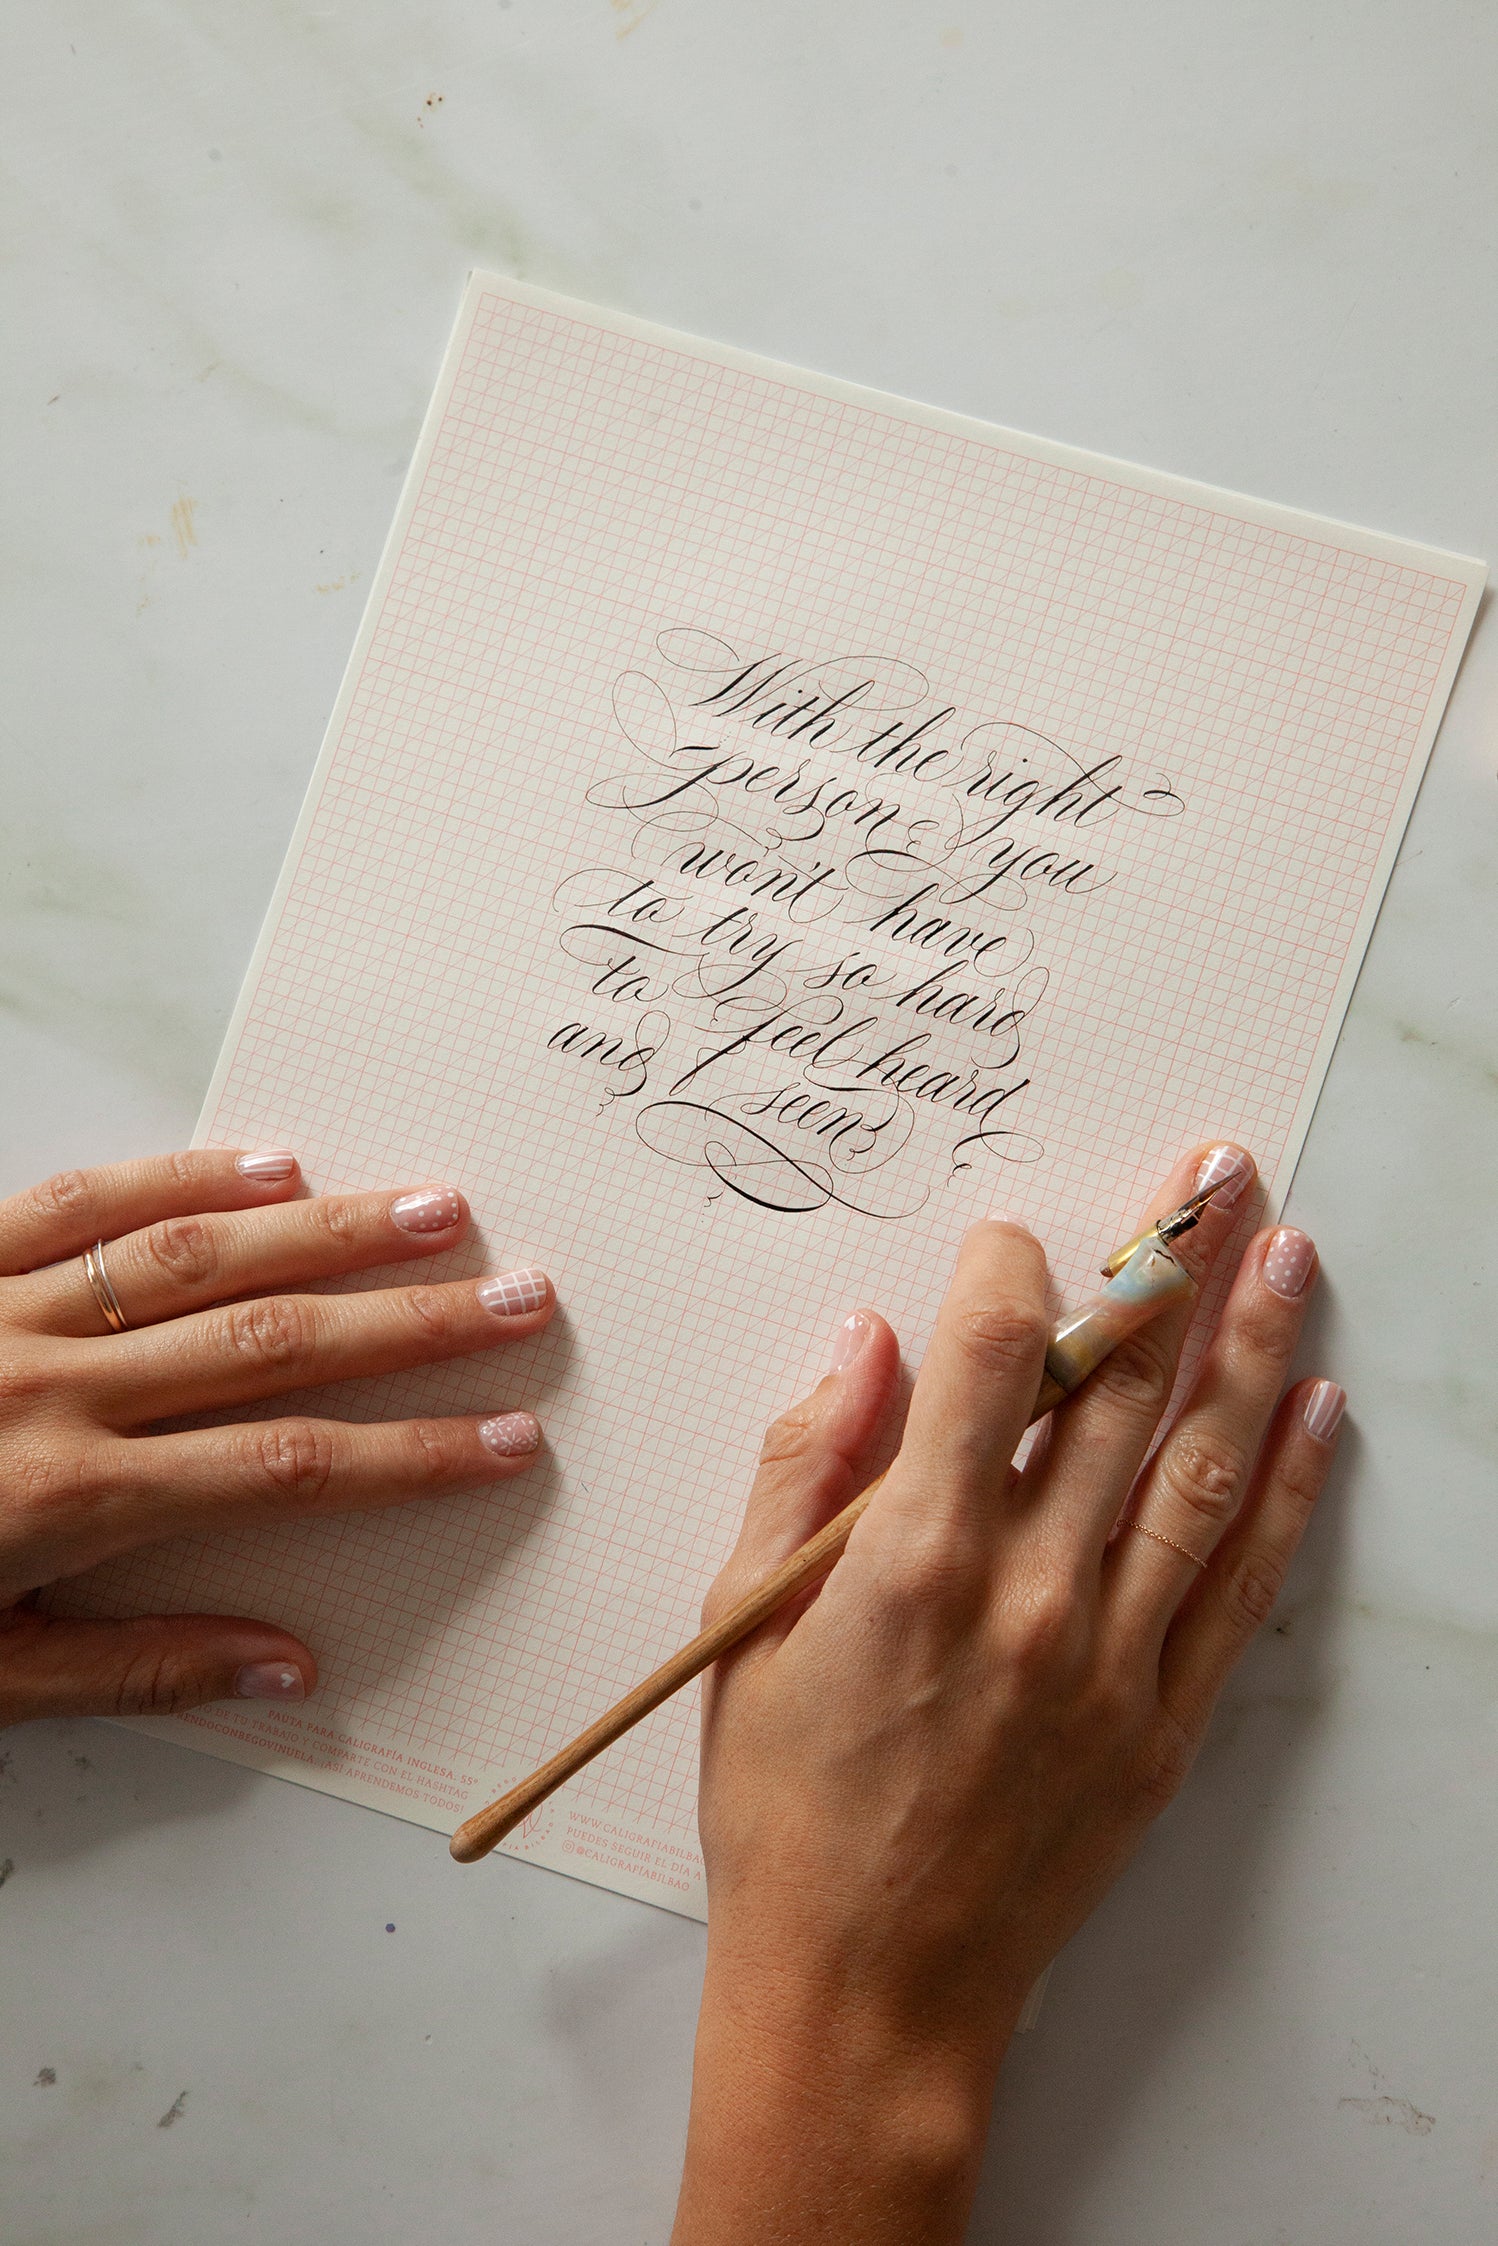 With the right
person you
won't have
to try so hard
to feel heard
and seen
PAUTA PARA CALIGRAFÍA INGLESA. 55º
DE TU TRABAJO Y COMPARTE CON EL HASHTAG
¡ASÍ APRENDEMOS TODOS!
BILBAO
PUEDES SEGUIR EL DÍA A
@CALIGRAFIABILBAO